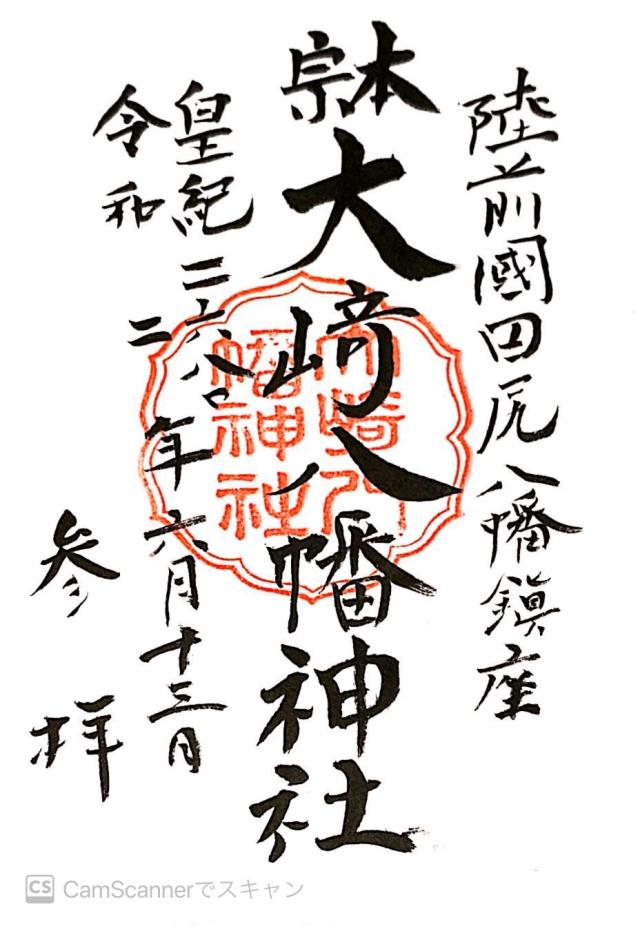 陸前國田尻八幡鎮座
本宗
大崎八幡神社
大崎八幡神社
皇紀二六八〇
令和二
年六月十三日
参拝
CS CamScannerでスキャン